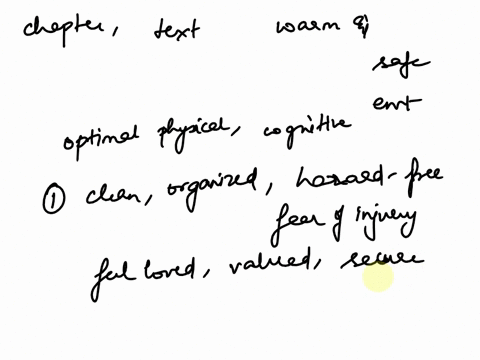 chapter, text warm &
safe
envt
optimal physical, cognitive
① clean, organized, hazard-free
fear of injury
feel loved, valued, secure